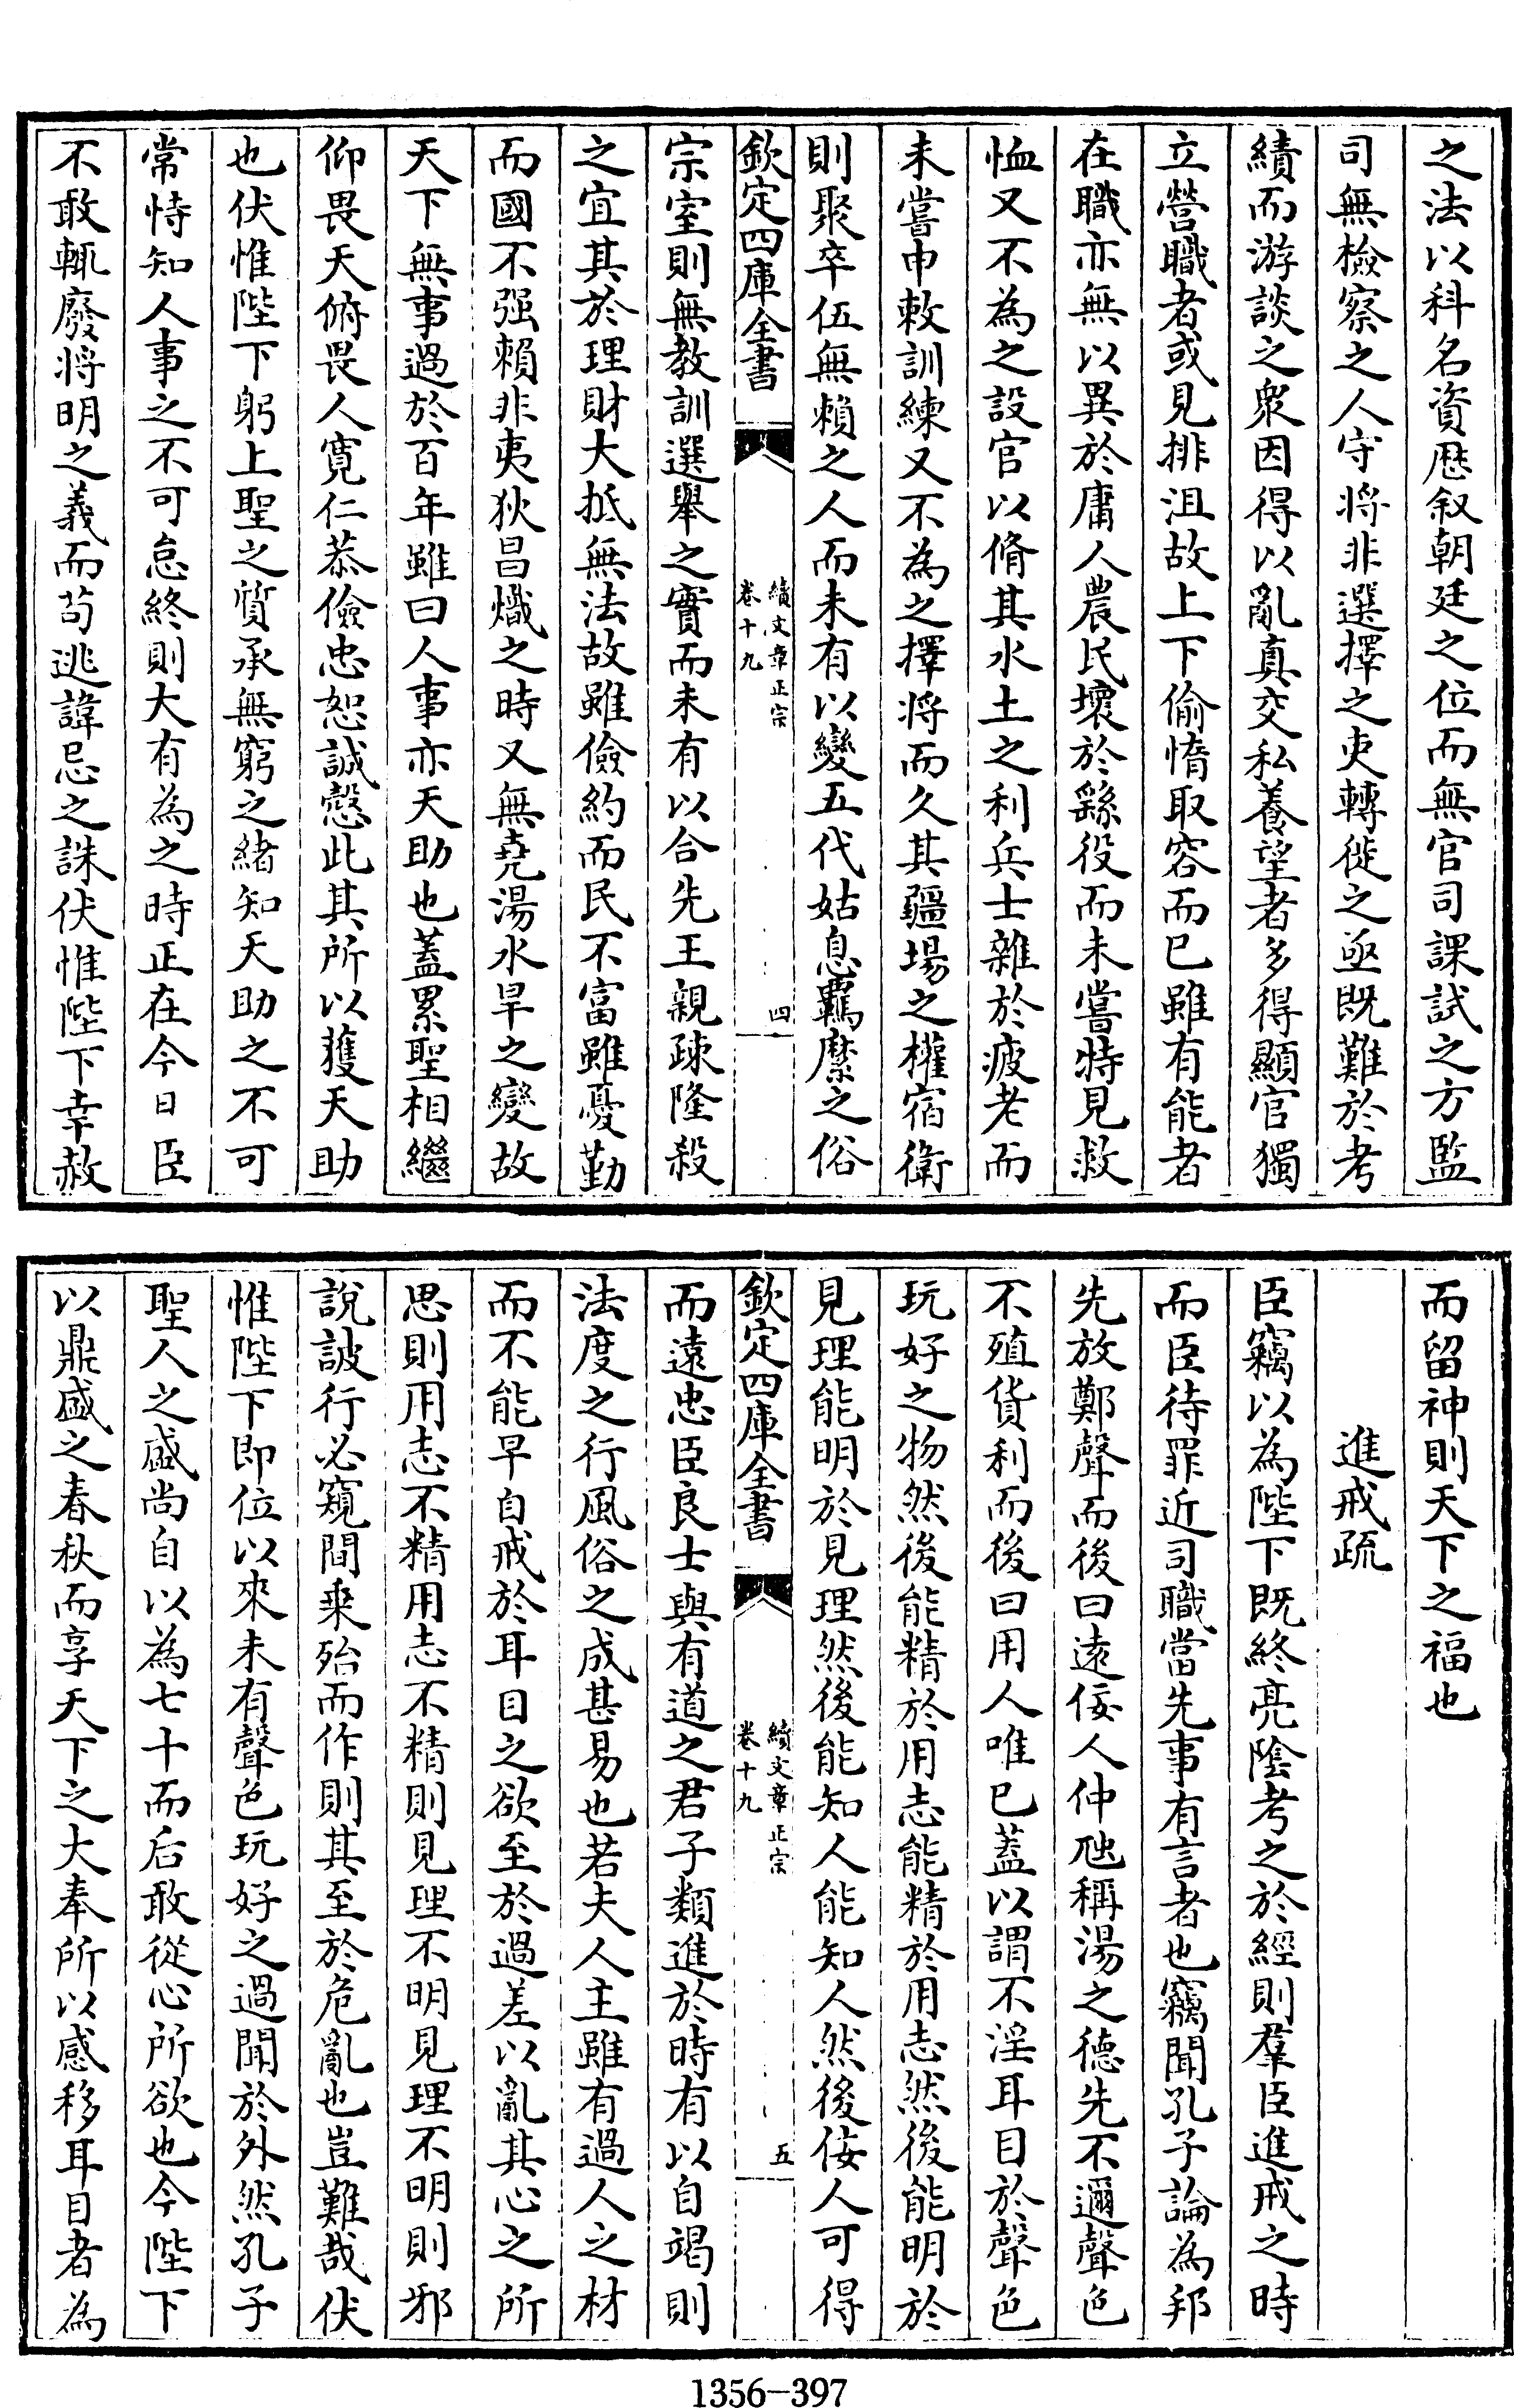 之法以科名資歴叙朝廷之位而無官司課試之方監
司無檢察之人守將非選擇之吏轉徙之亟既難於考
績而游談之衆因得以亂真交私養望者多得顯官獨
立營職者或見排沮故上下偷惰取容而已雖有能者
在職亦無以異於庸人農民壞於繇役而未嘗特見救
恤又不為之設官以脩其水土之利兵士雜於疲老而
未嘗申敕訓練又不為之擇將而久其疆場之權宿衛
則聚卒伍無賴之人而未有以變五代姑息羈縻之俗
欽定四庫全書
續文章正宗
卷十九
四
宗室則無教訓選舉之實而未有以合先王親疎隆殺
之宜其於理財大抵無法故雖儉約而民不富雖憂勤
而國不强賴非夷狄昌熾之時又無堯湯水旱之變故
天下無事過於百年雖曰人事亦天助也蓋累聖相繼
仰畏天俯畏人寛仁恭儉忠恕誠慤此其所以獲天助
也伏惟陛下躬上聖之質承無窮之緒知天助之不可
常恃知人事之不可怠終則大有為之時正在今日臣
不敢輒廢將明之義而苟逃諱忌之誅伏惟陛下幸赦
而留神則天下之福也
進戒疏
臣竊以為陛下既終亮陰考之於經則羣臣進戒之時
而臣待罪近司職當先事有言者也竊聞孔子論為邦
先放鄭聲而後曰遠佞人仲虺稱湯之德先不邇聲色
不殖貨利而後曰用人唯已蓋以謂不淫耳目於聲色
玩好之物然後能精於用志能精於用志然後能明於
見理能明於見理然後能知人能知人然後佞人可得
欽定四庫全書
續文章正宗
卷十九
五
而遠忠臣良士與有道之君子類進於時有以自竭則
法度之行風俗之成甚易也若夫人主雖有過人之材
而不能早自戒於耳目之欲至於過差以亂其心之所
思則用志不精用志不精則見理不明見理不明則邪
說詖行必窺間乗殆而作則其至於危亂也豈難哉伏
惟陛下即位以來未有聲色玩好之過聞於外然孔子
聖人之盛尚自以為七十而后敢從心所欲也今陛下
以鼎盛之春秋而享天下之大奉所以感移耳目者為
1356-397